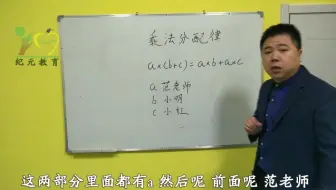 乘法分配律
a×(b+c)=a×b+a×c
a 范老师
b 小明
c 小红
纪元教育
这两部分里面都有a 然后呢 前面呢 范老师